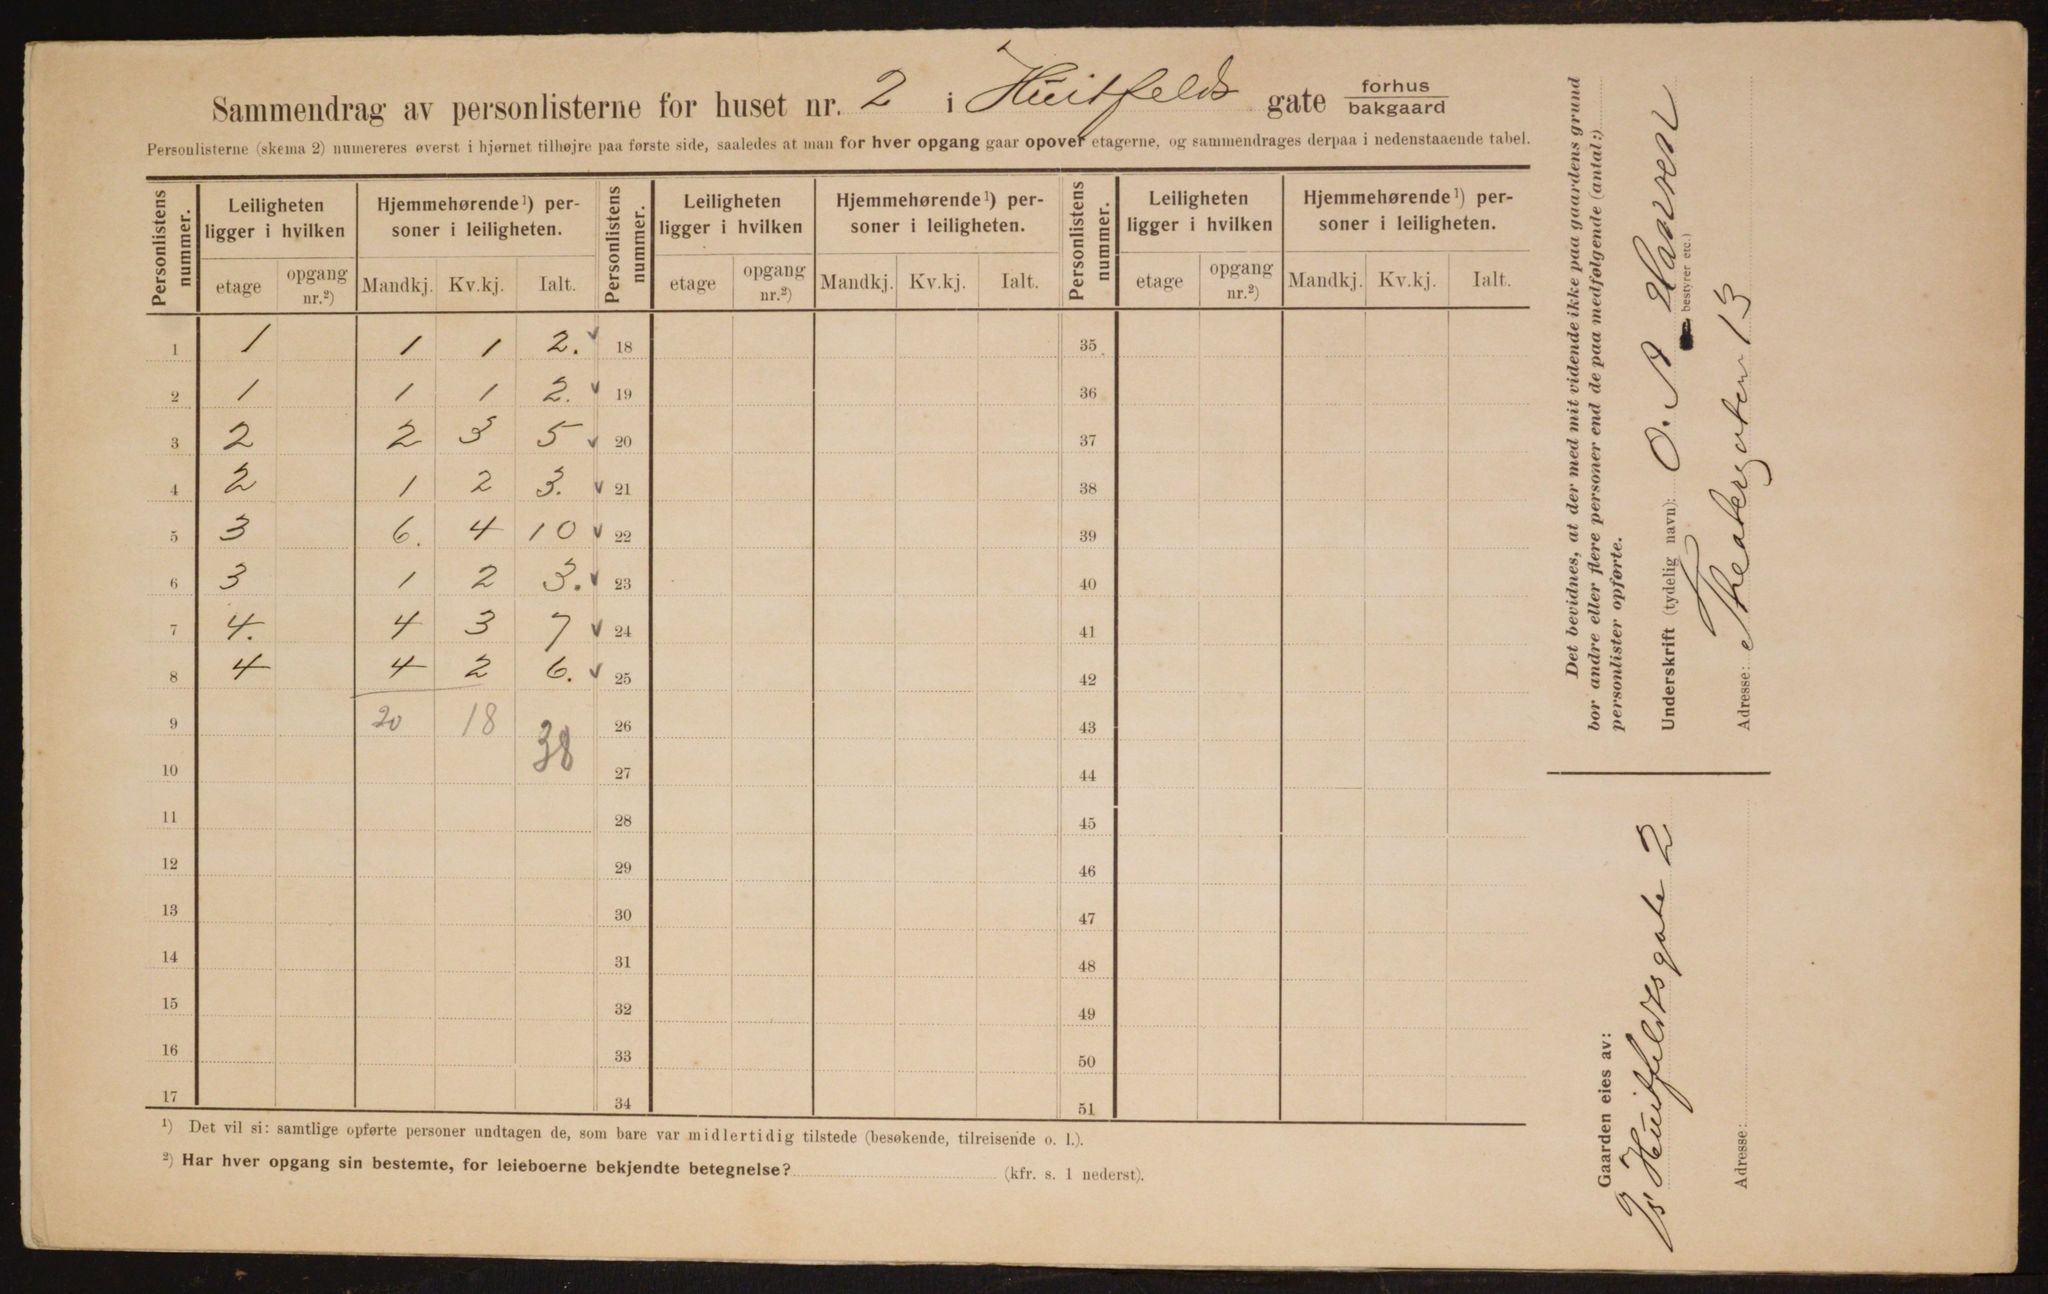 Sammendrag av personlisterne for huset nr. 2 i Huitfelds gate forhus bakgaard
Personlisterne (skema 2) numereres øverst i hjørnet tilhøjre paa første side, saaledes at man for hver opgang gaar opover etagerne, og sammendrages derpaa i nedenstaaende tabel.
Personlistens nummer. Leiligheten ligger i hvilken Hjemmehørende ¹) personer i leiligheten. Personlistens nummer. Leiligheten ligger i hvilken Hjemmehørende ¹) personer i leiligheten. Personlistens nummer. Leiligheten ligger i hvilken Hjemmehørende ¹) personer i leiligheten.
etage opgang nr.²) Mandkj. Kv.kj. Ialt. etage opgang nr.²) Mandkj. Kv.kj. Ialt. etage opgang nr.²) Mandkj. Kv.kj. Ialt.
1 1 1 1 2. 18 35
2 1 1 1 2. 19 36
3 2 2 3 5 20 37
4 2 1 2 3. 21 38
5 3 6. 4 10 22 39
6 3 1 2 3. 23 40
7 4. 4 3 7 24 41
8 4 4 2 6. 25 42
9 20 18 38 26 43
10 27 44
11 28 45
12 29 46
13 30 47
14 31 48
15 32 49
16 33 50
17 34 51
¹) Det vil si: samtlige opførte personer undtagen de, som bare var midlertidig tilstede (besøkende, tilreisende o. l.).
²) Har hver opgang sin bestemte, for leieboerne bekjendte betegnelse? (kfr. s. 1 nederst).
Det bevidnes, at der med mit vidende ikke paa gaardens grund
bor andre eller flere personer end de paa medfølgende (antal:)
personlister opførte.
Underskrift (tydelig navn): O. A Hansen
bestyrer etc.)
Adresse: Theatergaten 13
Gaarden eies av:
Huitfeldtsgate 2
Adresse: